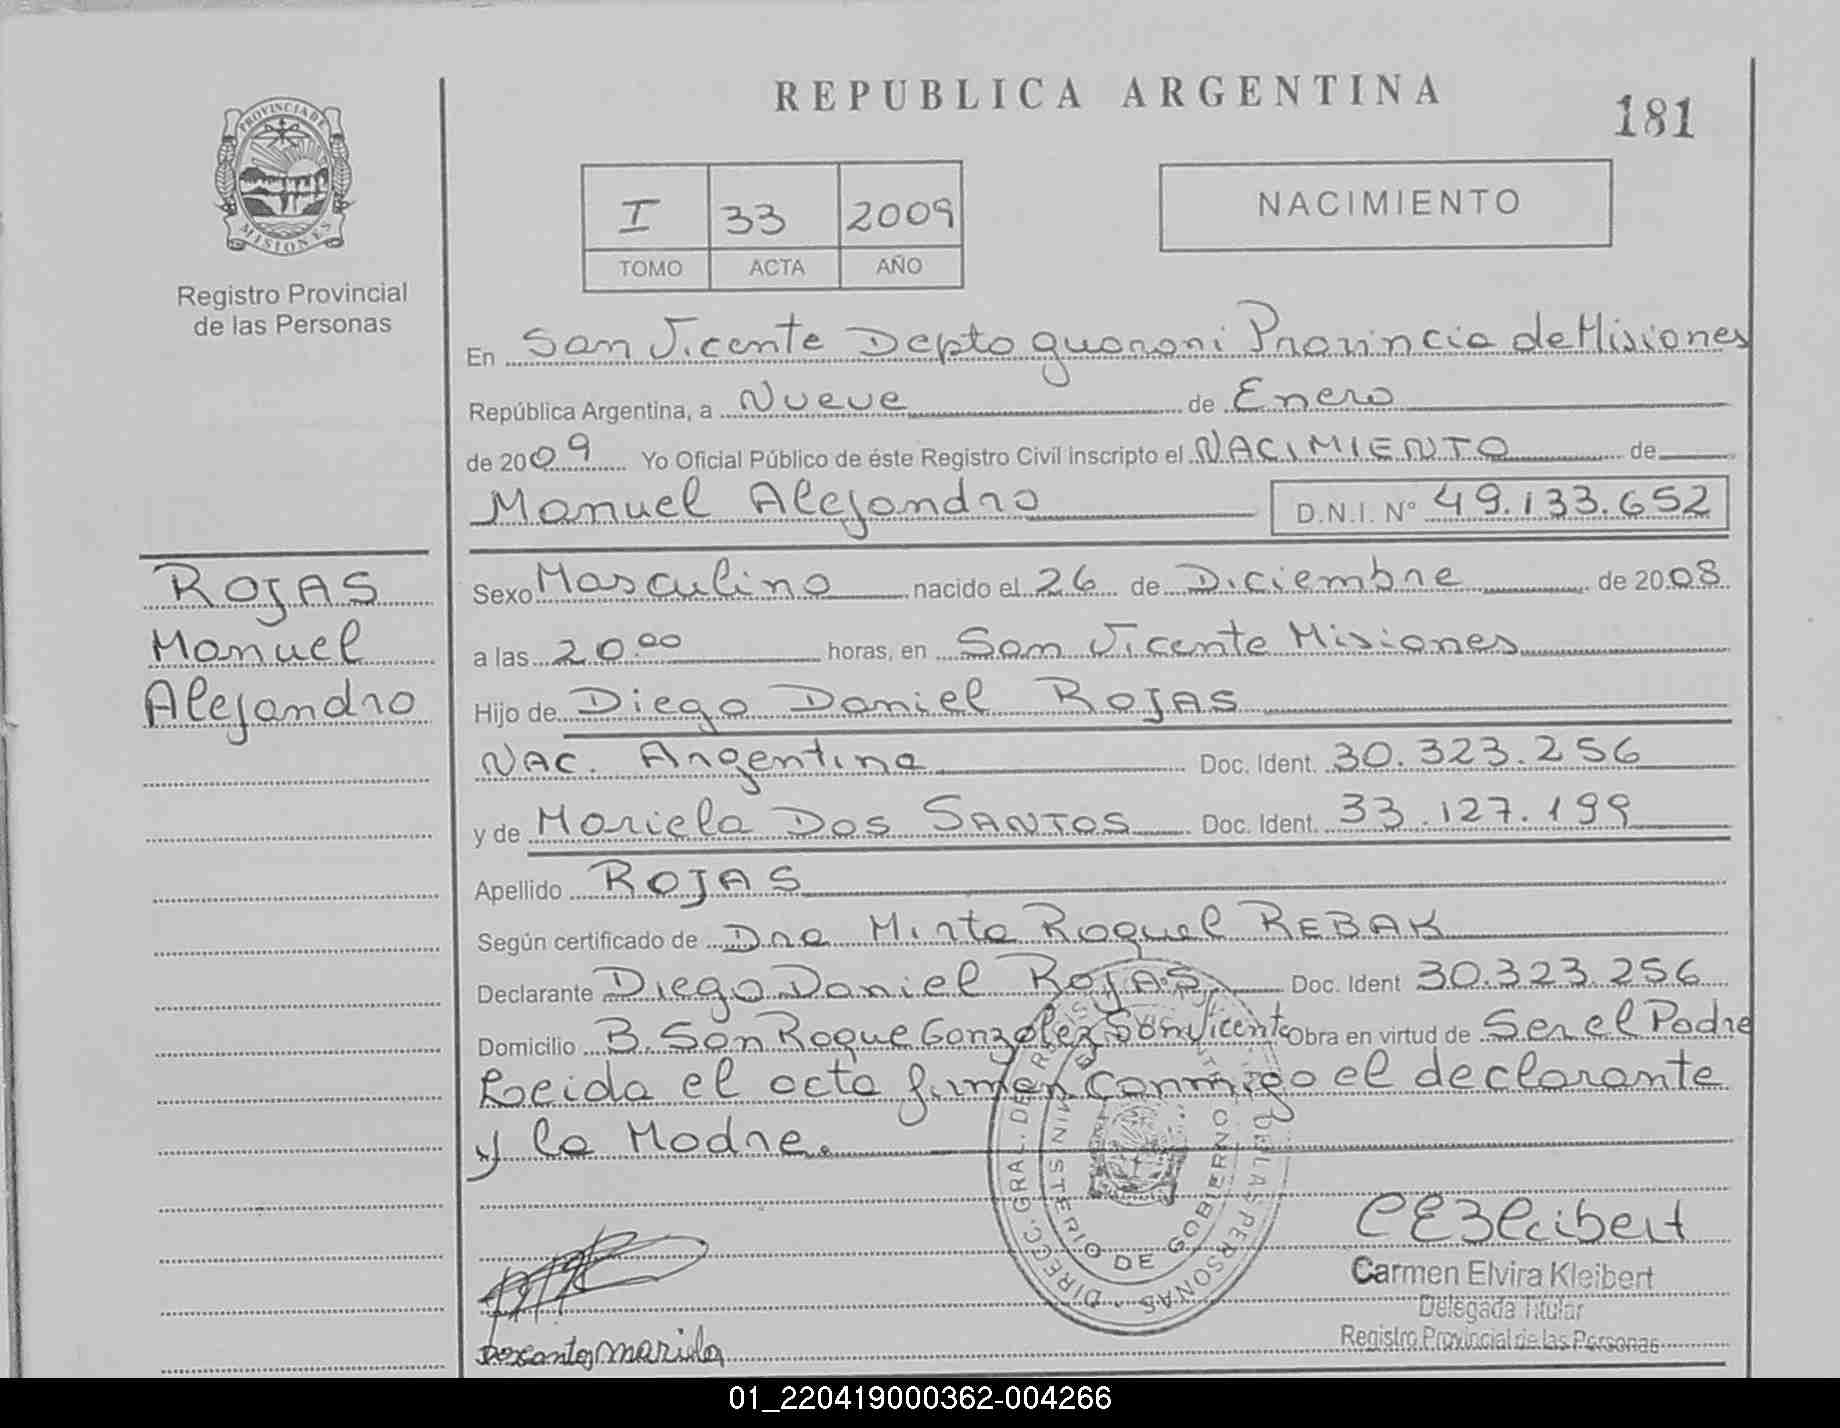 REPUBLICA ARGENTINA
181
PROVINCIA DE
MISIONES
Registro Provincial
de las Personas
I 33 2009
TOMO ACTA AÑO
NACIMIENTO
En San Vicente Depto guarani Provincia de Misiones
República Argentina, a Nueve de Enero
de 2009 Yo Oficial Público de éste Registro Civil inscripto el NACIMIENTO de
Manuel Alejandro D.N.I. Nº 49.133.652
ROJAS
Manuel
Alejandro
Sexo Masculino nacido el 26 de Diciembre de 2008
a las 20.00 horas, en San Vicente Misiones
Hijo de Diego Daniel ROJAS
NAC. Argentina Doc. Ident. 30.323.256
y de Mariela DOS SANTOS Doc. Ident. 33.127.199
Apellido ROJAS
Según certificado de Dra Mirta Raquel REBAK
Declarante Diego Daniel ROJAS Doc. Ident 30.323.256
Domicilio B. San Roque Gonzalez San Vicente Obra en virtud de Ser el Padre
Leida el acta firman conmigo el declarante
y la Madre.
DIRECC. GRAL. DEL REGIS DE LAS PERSONAS
MINISTERIO DE GOBIERNO
CEKleibert
Carmen Elvira Kleibert
Delegada Titular
Registro Provincial de las Personas
Dosantos mariela
01_220419000362-004266